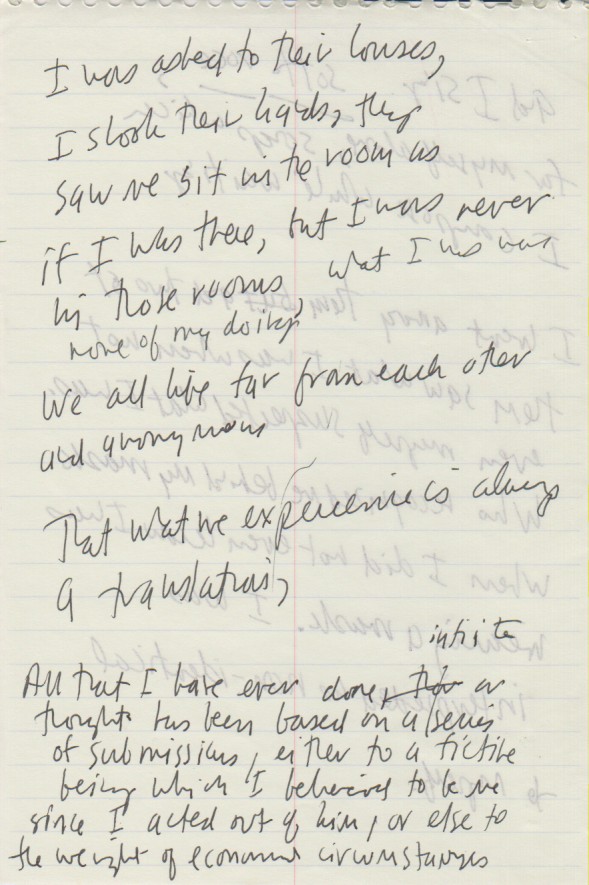 I was asked to their houses,
I shook their hands, they
saw me sit in the room as
if I was there, but I was never
what I was was
in those rooms,
none of my doing
We all live far from each other
and anonymous
That what we experience is always
a translation,
infinite
All that I have ever done, or
thought has been based on a series
of submissions, either to a fictive
being which I believed to be me
since I acted out of him, or else to
the weight of economic circumstances